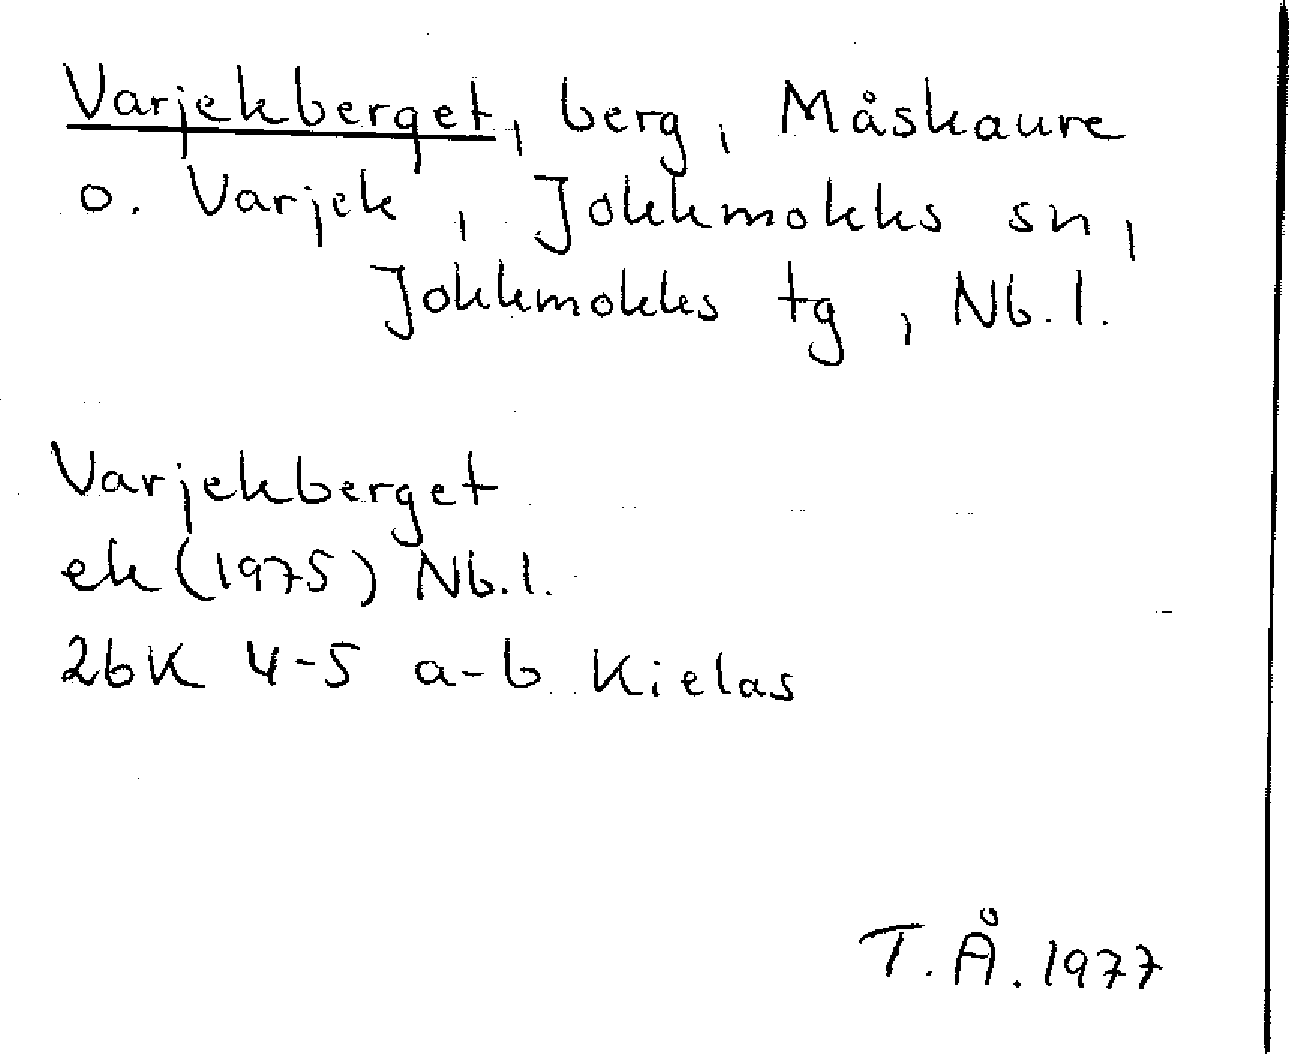 Varjekberget, berg, Måskaure
o. Varjek, Jokkmokks sn,
Jokkmokks tg, Nb.l.
Varjekberget
ek (1975) Nb.l.
26K 4-5 a-b Kielas
T.Å. 1977